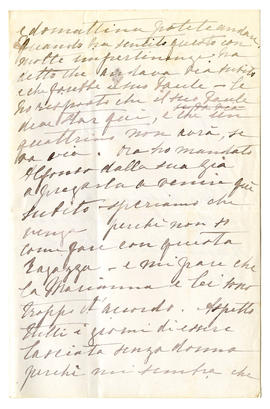 e domattina potete andare.
Quando ha sentito questo con
molte impertinenze ha
detto che andava via subito
e che fosse il suo baule – le
ho risposto che il suo baule
deve star qui, e che un
quattrino non avrà, se
va via. Ora ho mandato
Alfonso dalla sua zia
a pregarla a venire qui
subito – speriamo che
venga perchè non so
come fare con questa
Ragazza – e mi pare che
la Marianna e lei sono
troppo d'accordo. Aspetto
tutti i giorni di essere
lasciata senza donna
perchè mi sembra che